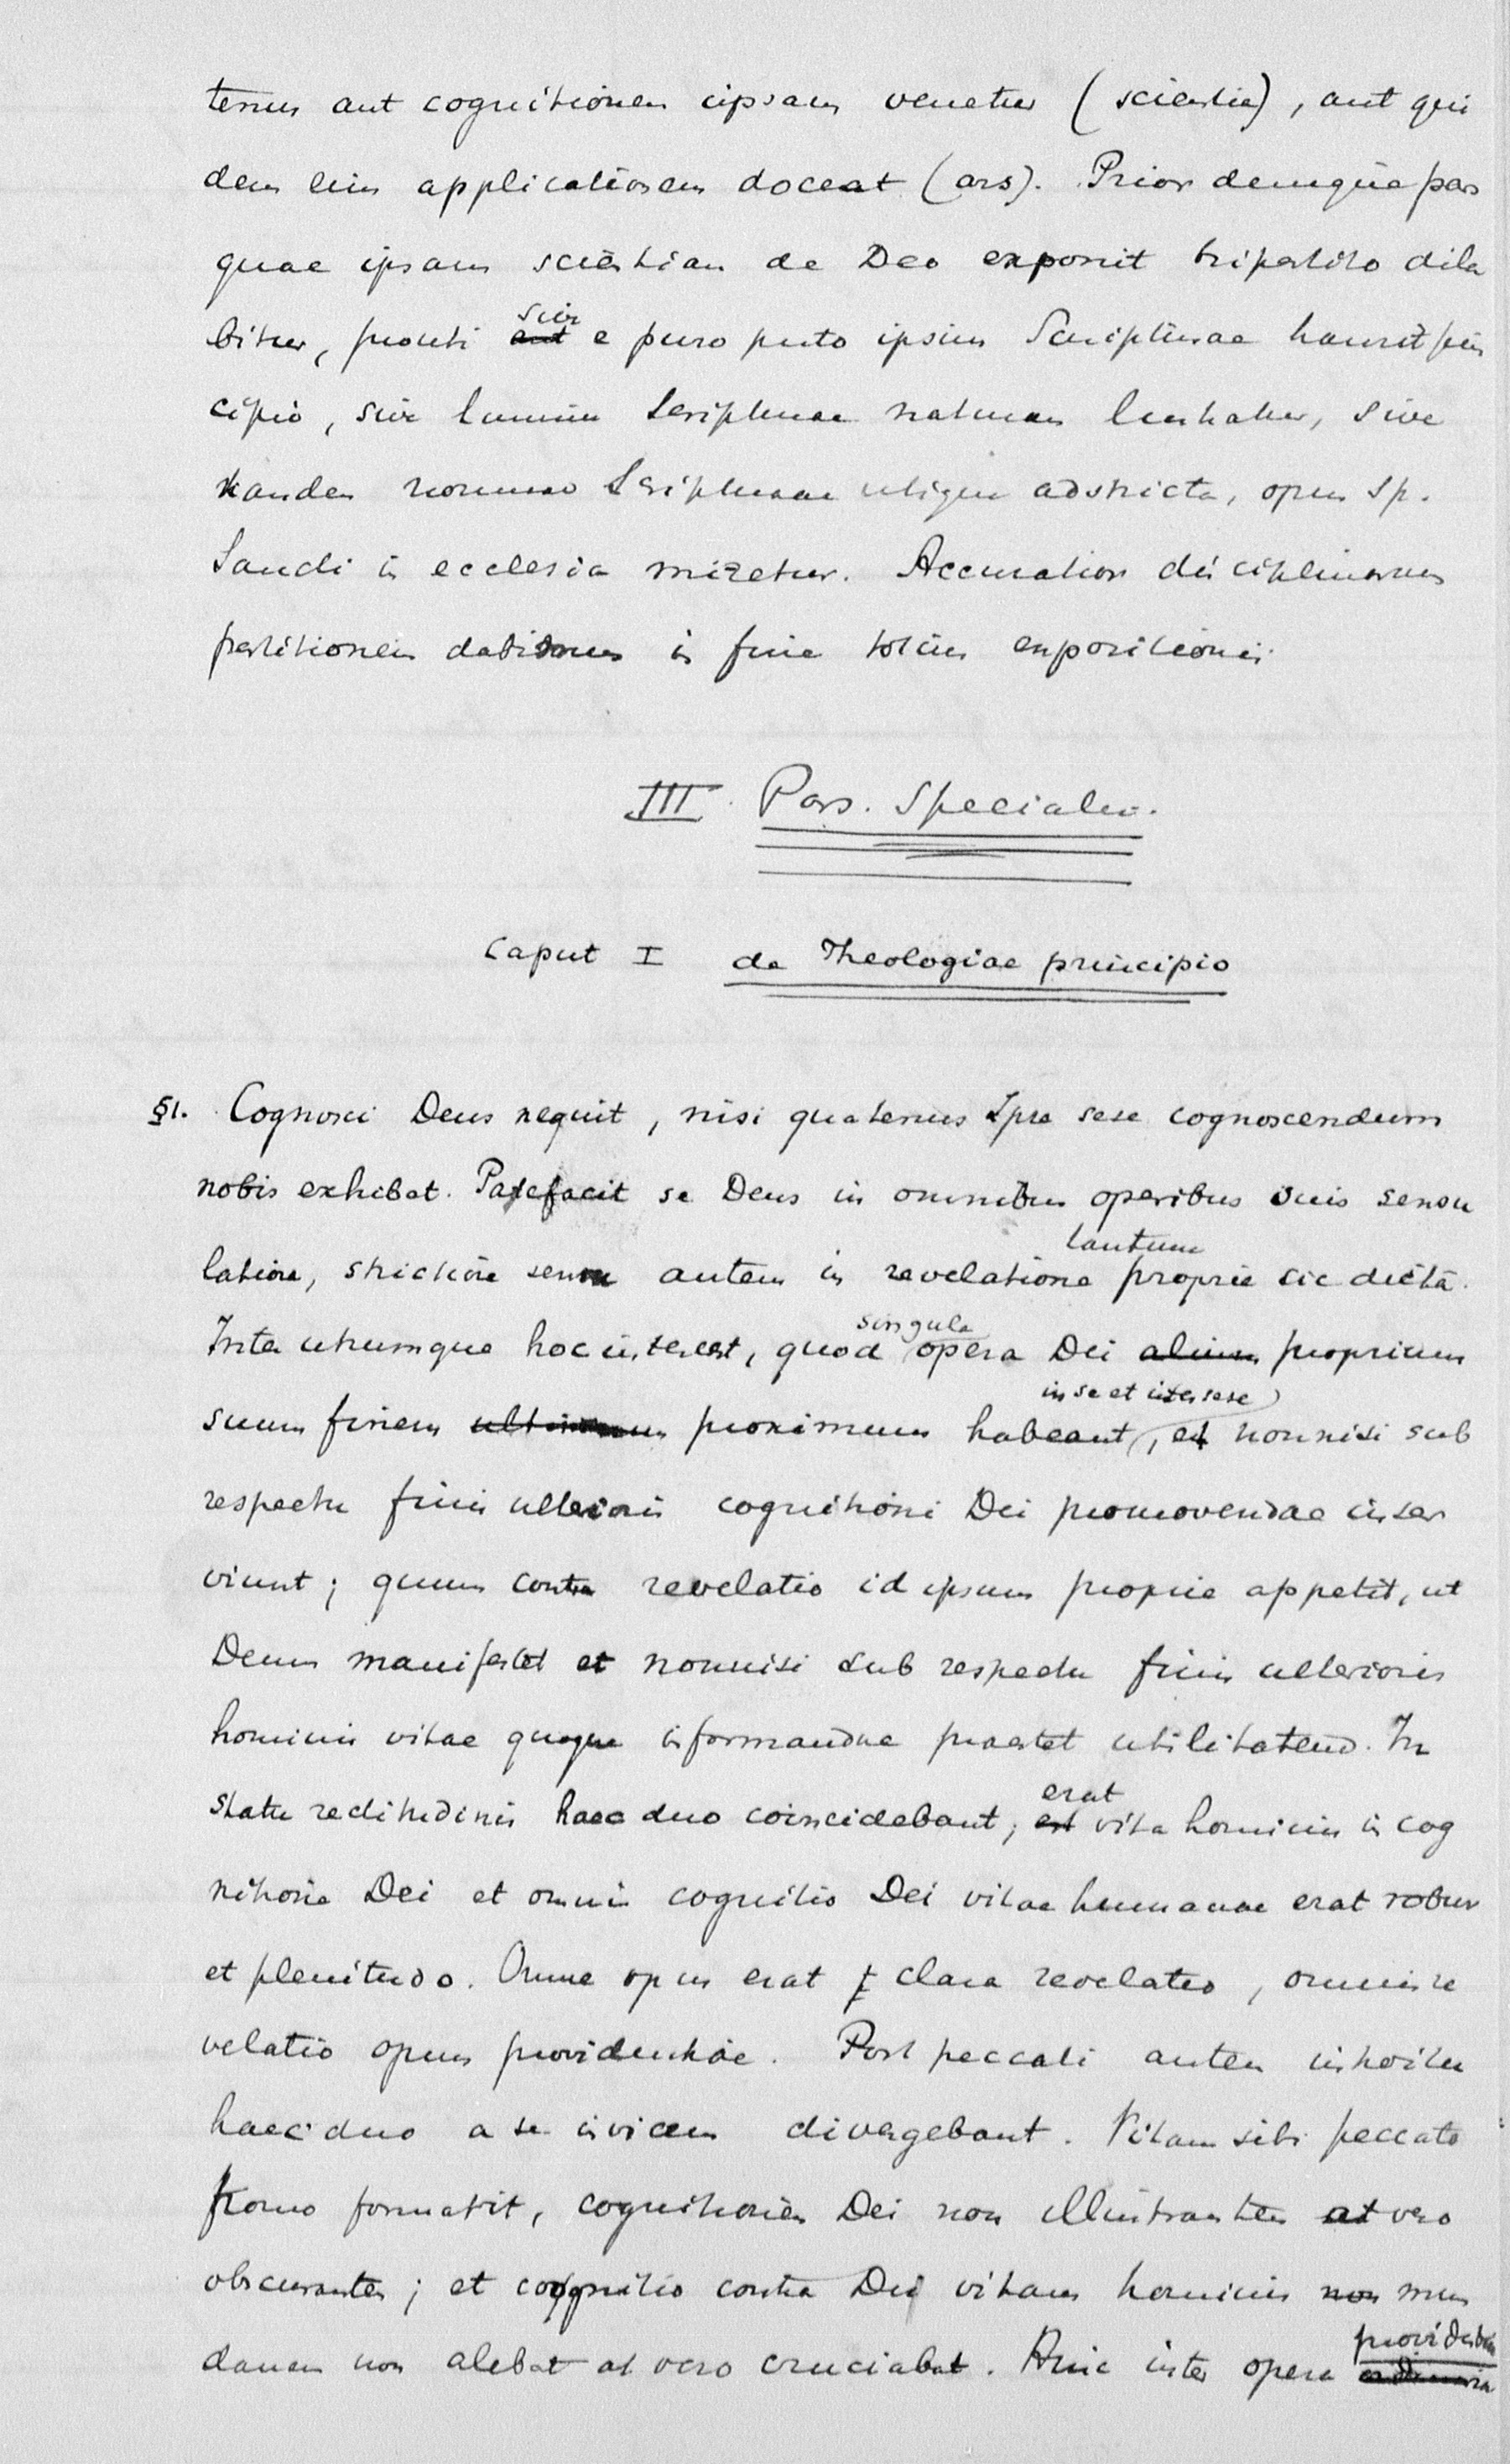 tenus aut cognitionem ipsam venetur (scientia), aut qui
dem eius applicationem doceat (ars). Prior denique pars
quae ipsam scientiam de Deo exponit tripertito dila
bitur, prouti sive e puro puto ipsius Scripturae haurit prin
cipio, sive lumine Scripturae naturam lustratur, sive
tandem normae Scripturae utique adstricta, opus Sp.
Sancti in ecclesia miretur. Accuratior disciplinarum
partitionem dabimus in fine totius expositionis.
III. Pars. Specialis.
Caput I de Theologiae principio
§1. Cognosci Deus nequit, nisi quatenus Ipse sese cognoscendum
nobis exhibet. Patefacit se Deus in omnibus operibus suis sensu
latiore, strictiore sensu autem in revelatione tantum proprie sic dictâ.
Inter utrumque hoc interest, quod singula opera Dei proprium
suum finem proximum habeant in se et inter sese, et nonnisi sub
respectu finis ulterioris cognitioni Dei promovendae inser
viunt; quum contra revelatio id ipsum proprie appetit, ut
Deum manifestet et nonnisi sub respectu finis ulterioris
hominis vitae quoque informandae praestet utilitatem. In
statu rectitudinis haec duo coincidebant; erat vita hominis in cog
nitione Dei et omnis cognitio Dei vitae humanae erat robur
et plenitudo. Omne opus erat clara revelatio, omnis re
velatio opus providentiae. Post peccati autem introitum
haec duo a se invicem divergebant. Vitam sibi peccato
homo formavit, cognitionem Dei non illustrantem at vero
obscurantem; et cognitio contra Dei vitam hominis mun
danam non alebat at vero cruciabat. Hinc inter opera providentiae